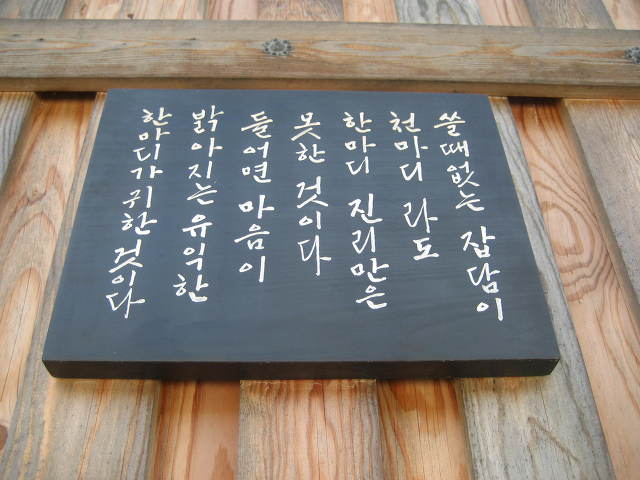 쓸때없는 잡담이
천마디 라도
한마디 진리만은
못한 것이다
들어면 마음이
밝아지는 유익한
한마디가 귀한 것이다